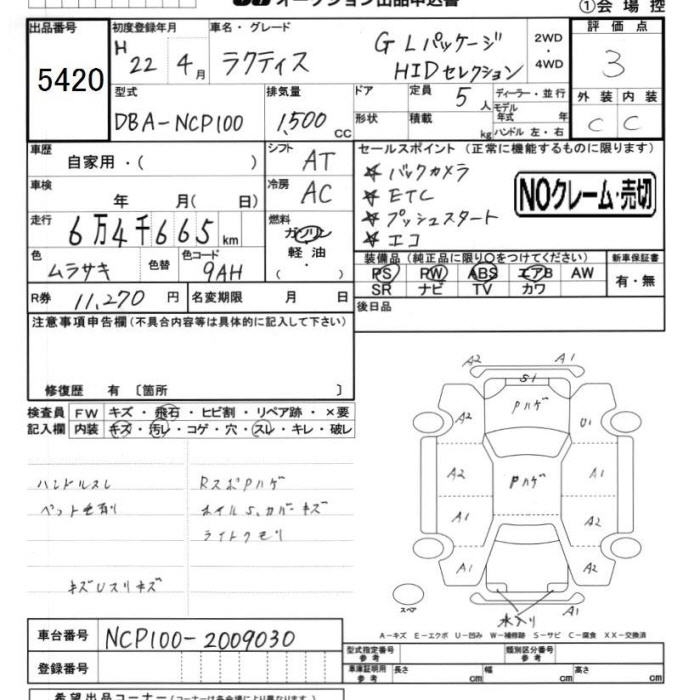 オークション出品申込書
①会場控
出品番号 5420
初度登録年月 H 22 4月
車名・グレード ラクティス GLパッケージ HIDセレクション
2WD・4WD
評価点 3
外装 C 内装 C
型式 DBA-NCP100
排気量 1,500 CC
ドア形状
定員 5人
積載 kg
ディーラー・並行
モデル年式 年
ハンドル 左・右
車歴 自家用・( )
シフト AT
車検 年 月( 日)
冷房 AC
セールスポイント(正常に機能するものに限ります)
☆バックカメラ
☆ETC
☆プッシュスタート
☆エコ
NOクレーム・売切
走行 6万4千665km
燃料 ガソリン 軽油 ( ・ )
色 ムラサキ 色替 色コード 9AH
装備品(純正品に限り○をつけてください)
PS RW ABS エアB AW
SR ナビ TV カワ
新車保証書 有・無
R券 11,270円 名変期限 月 日
後日品
注意事項申告欄(不具合内容等は具体的に記入して下さい)
修復歴 有〔箇所 〕
検査員記入欄
FW キズ・飛石・ヒビ割・リペア跡・×要
内装 キズ・汚レ・コゲ・穴・スレ・キレ・破レ
ハンドルスレ
ペット毛有り
キズUスリキズ
RスポPハゲ
ホイルS、カバーキズ
ライトクモリ
A2 A1
S1
Pハゲ
A2 U1
A2 Pハゲ A1
A1 A2
A1 A2
A1
水入り
スペア
A-キズ E-エクボ U-凹み W-補修跡 S-サビ C-腐食 XX-交換済
車台番号 NCP100-2009030
登録番号
型式指定番号 参考 類別区分番号 参考
車庫証明用 参考 長さ cm 幅 cm 高さ cm
希望出品コーナー(コーナーは各会場により異なります)